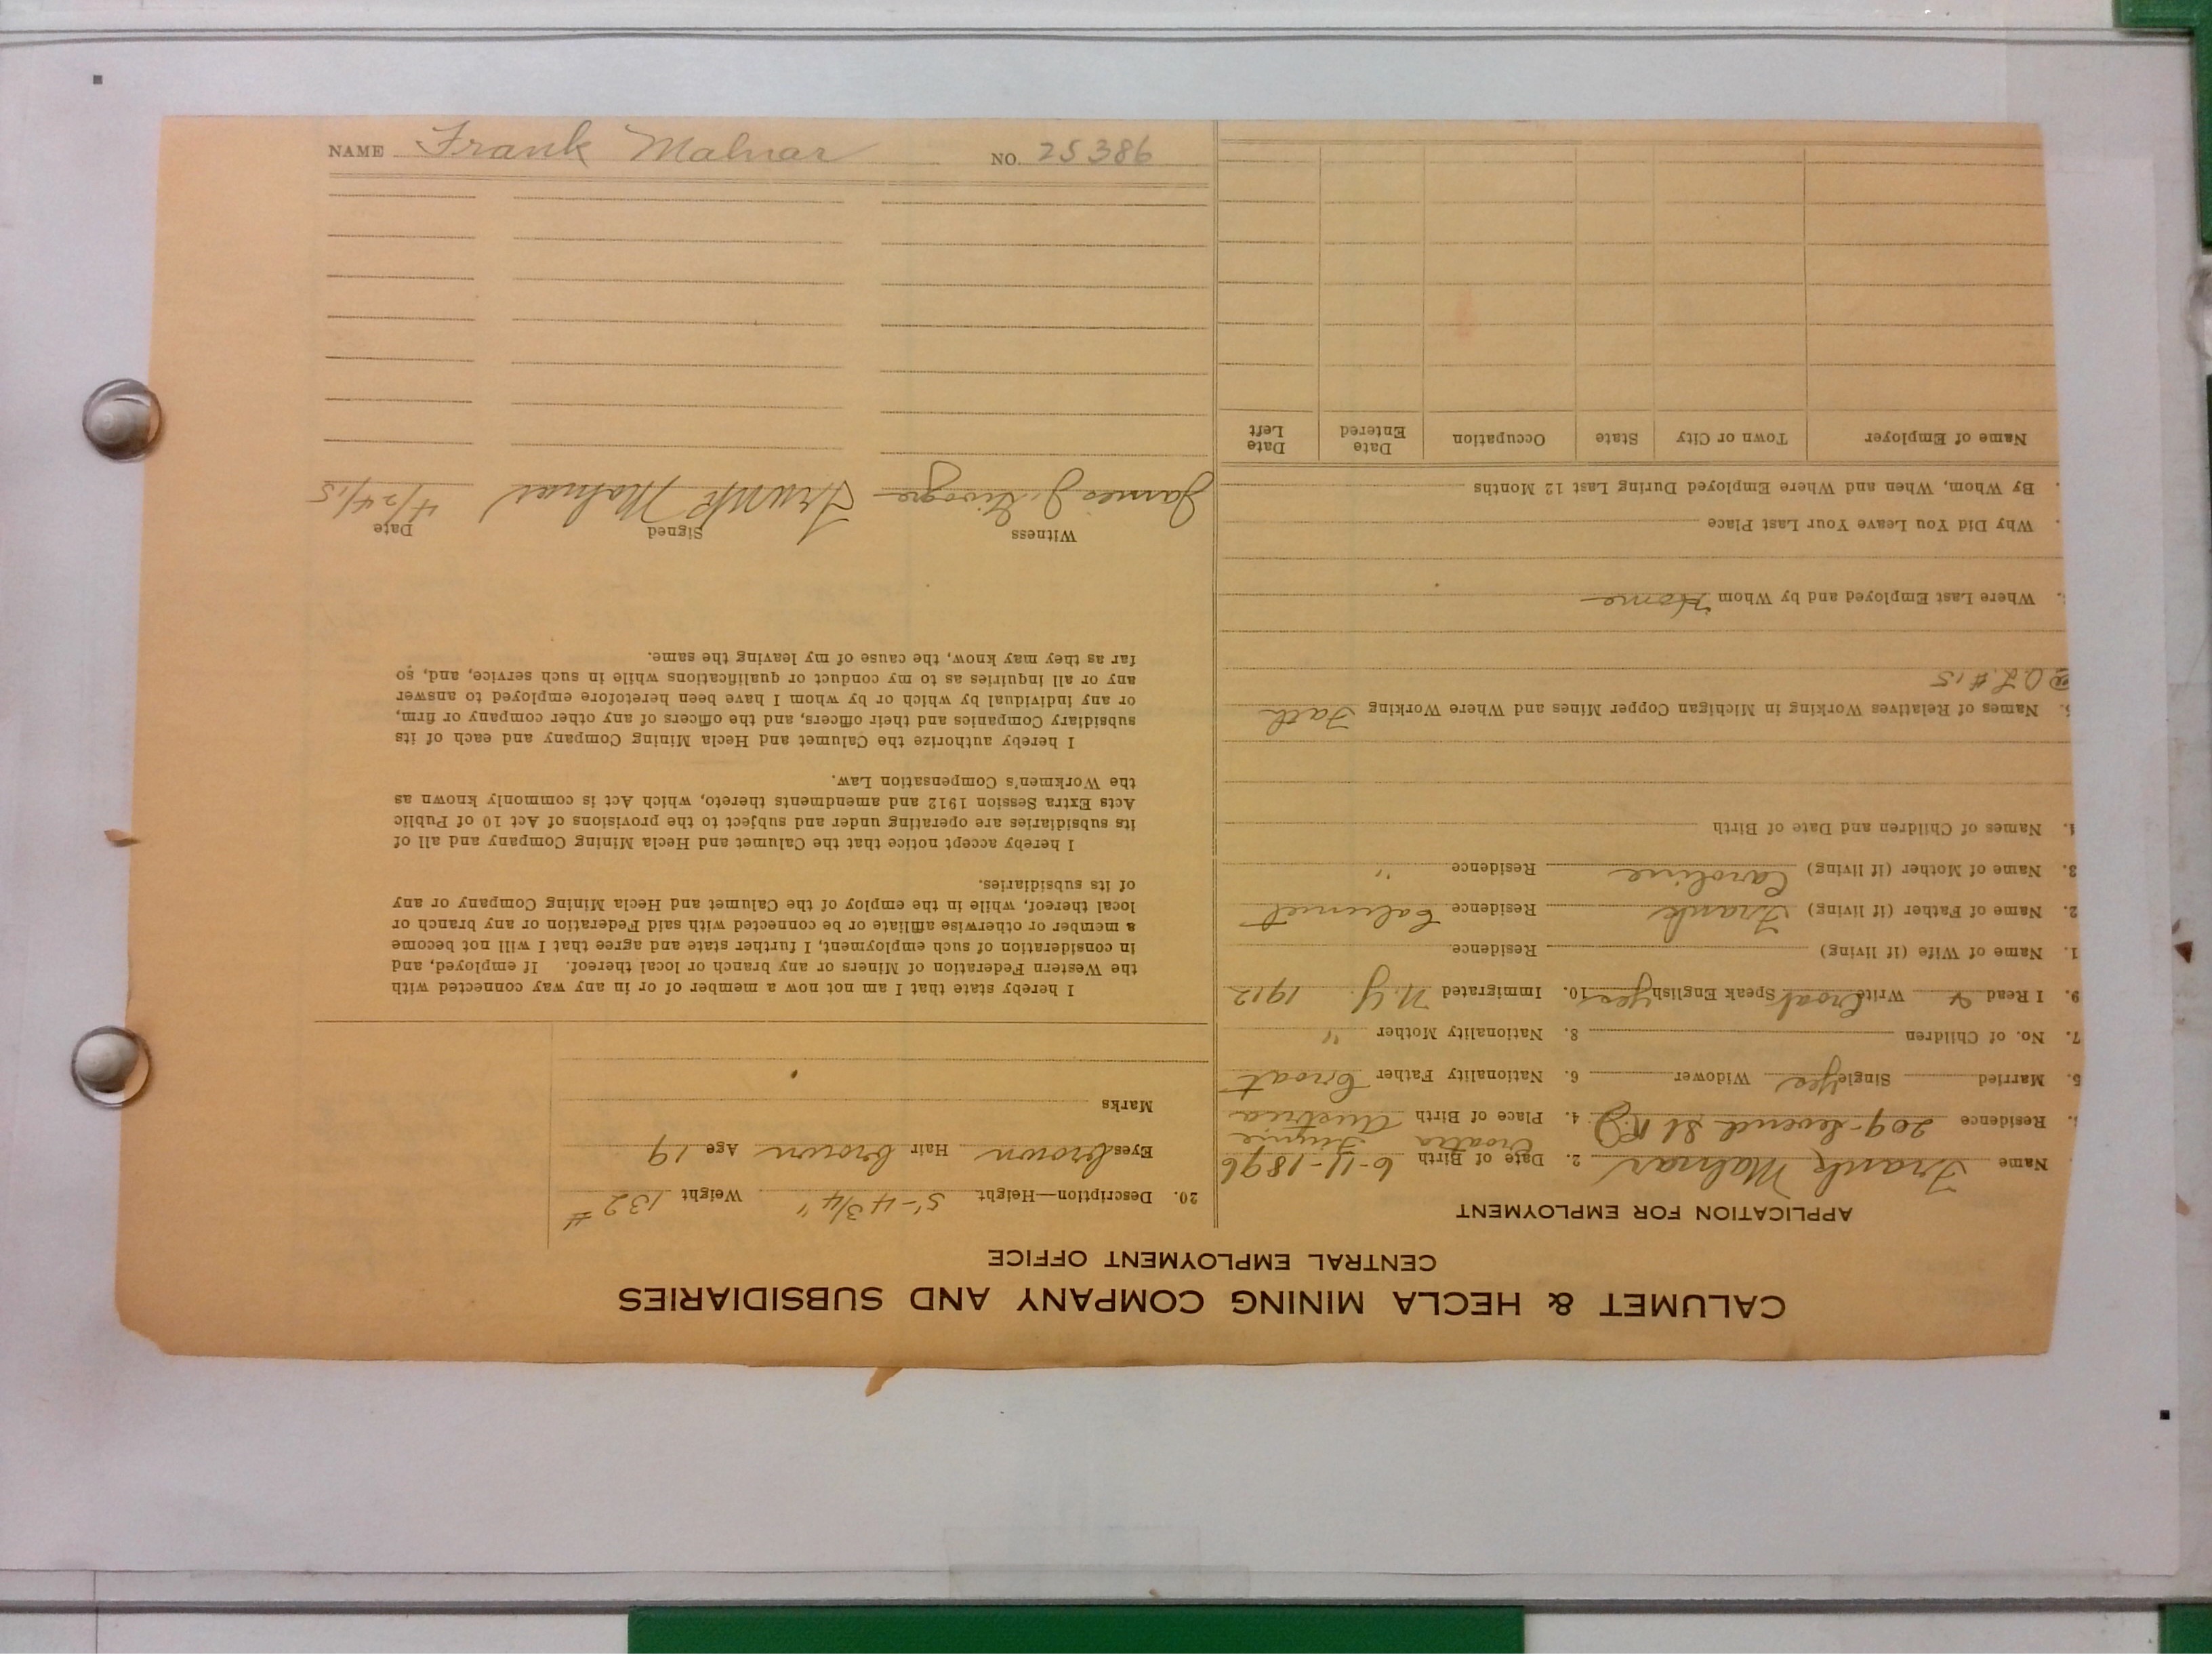 CALUMET & HECLA MINING COMPANY AND SUBSIDIARIES
CENTRAL EMPLOYMENT OFFICE
APPLICATION FOR EMPLOYMENT
Name Frank Malnar 2. Date of Birth 6-11-1896
Croatia Fiume
Residence 209-Seventh St R.J. 4. Place of Birth Austria
5. Married Single Yes Widower 6. Nationality Father Croat
7. No. of Children 8. Nationality Mother "
9. I Read & Write Croat Speak English Yes 10. Immigrated N.Y. 1912
1. Name of Wife (if living) Residence
2. Name of Father (if living) Frank Residence Calumet
3. Name of Mother (if living) Caroline Residence "
4. Names of Children and Date of Birth
5. Names of Relatives Working in Michigan Copper Mines and Where Working Fath
O.L. #15
Where Last Employed and by Whom Home
Why Did You Leave Your Last Place
By Whom, When and Where Employed During Last 12 Months
Name of Employer Town or City State Occupation Date Entered Date Left
20. Description—Height 5'-4 3/4" Weight 132 #
Eyes brown Hair brown Age 19
Marks
I hereby state that I am not now a member of or in any way connected with
the Western Federation of Miners or any branch or local thereof. If employed, and
in consideration of such employment, I further state and agree that I will not become
a member or otherwise affiliate or be connected with said Federation or any branch or
local thereof, while in the employ of the Calumet and Hecla Mining Company or any
of its subsidiaries.
I hereby accept notice that the Calumet and Hecla Mining Company and all of
its subsidiaries are operating under and subject to the provisions of Act 10 of Public
Acts Extra Session 1912 and amendments thereto, which Act is commonly known as
the Workmen's Compensation Law.
I hereby authorize the Calumet and Hecla Mining Company and each of its
subsidiary Companies and their officers, and the officers of any other company or firm,
or any individual by which or by whom I have been heretofore employed to answer
any or all inquiries as to my conduct or qualifications while in such service, and, so
far as they may know, the cause of my leaving the same.
Witness Signed Date
James J. Frank Malnar 4/24/15
NAME Frank Malnar NO. 25386